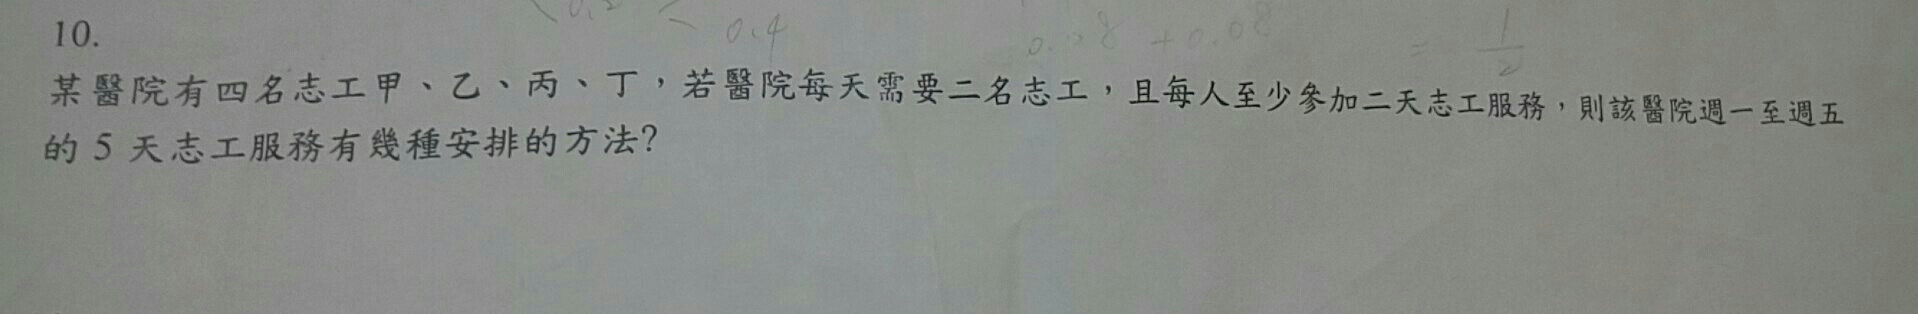 0.4
0.08
= 1/2
10.
某醫院有四名志工甲、乙、丙、丁，若醫院每天需要二名志工，且每人至少參加二天志工服務，則該醫院週一至週五
的 5 天志工服務有幾種安排的方法？